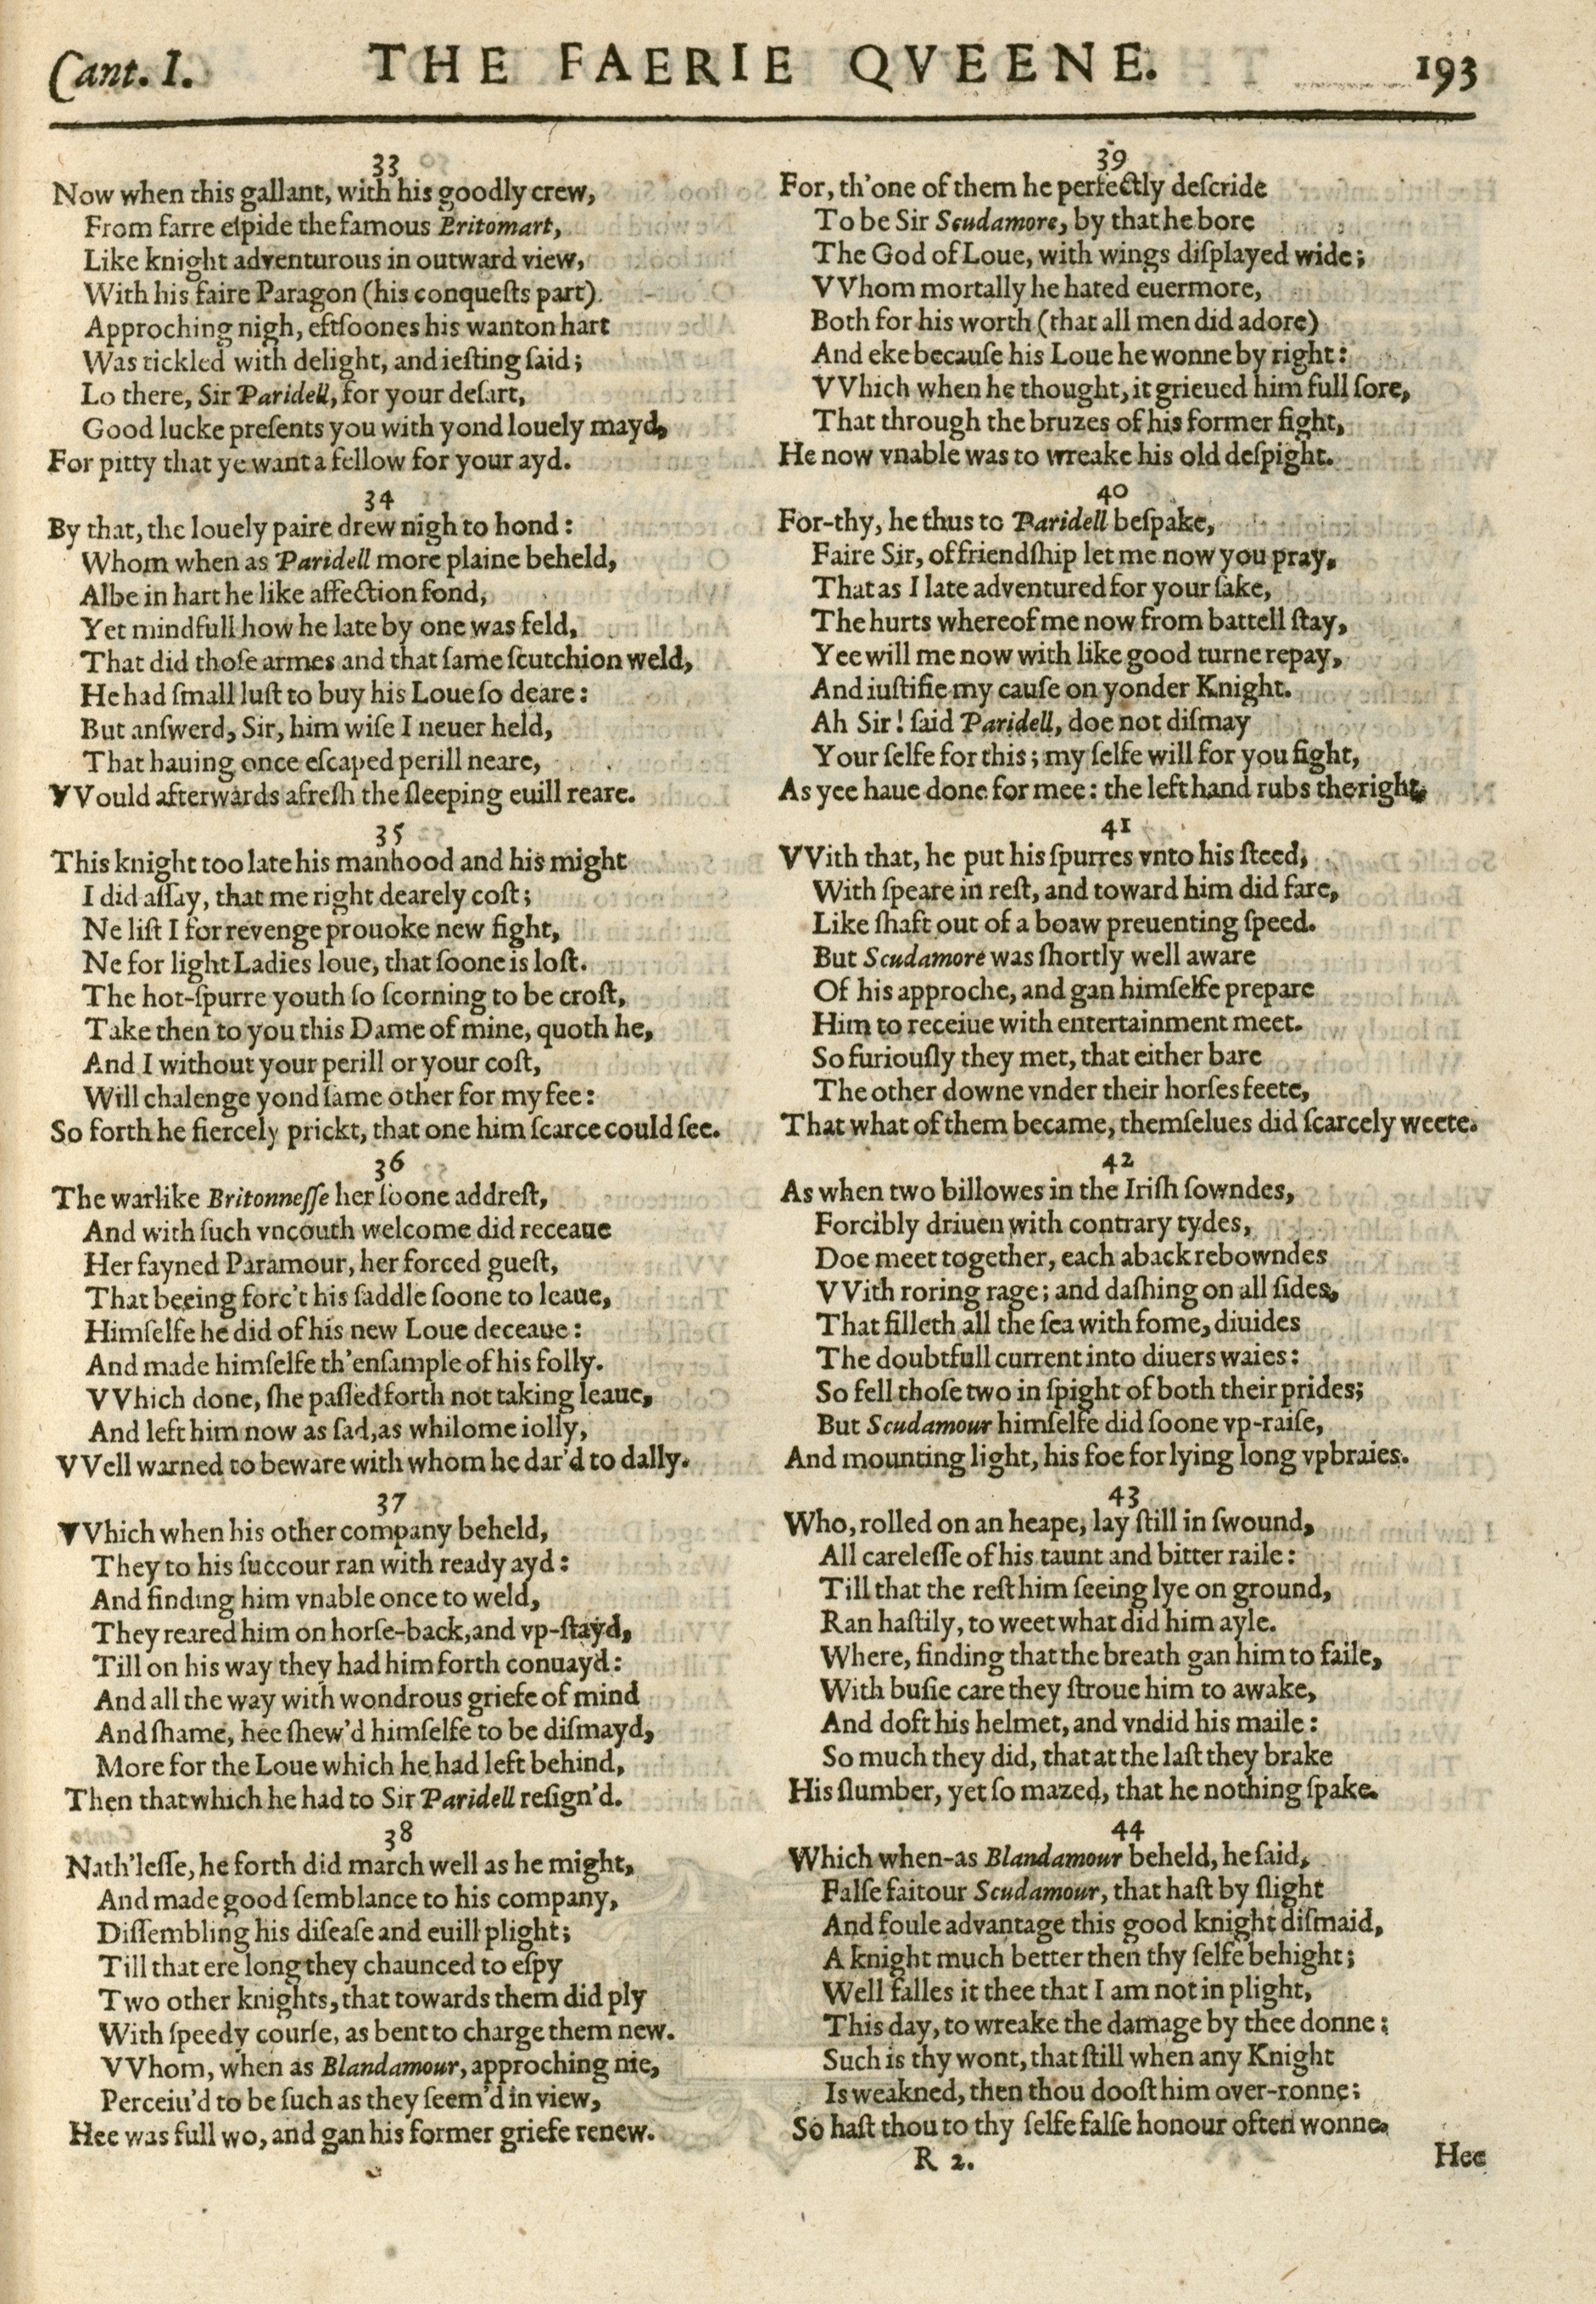 Cant. I. THE FAERIE QVEENE. 193
33
Now when this gallant, with his goodly crew,
From farre eſpide the famous Britomart,
Like knight adventurous in outward view,
With his faire Paragon (his conqueſts part)
Approching nigh, eftſoones his wanton hart
Was tickled with delight, and ieſting ſaid;
Lo there, Sir Paridell, for your deſart,
Good lucke preſents you with yond louely mayd,
For pitty that ye want a fellow for your ayd.
34
By that, the louely paire drew nigh to hond:
Whom when as Paridell more plaine beheld,
Albe in hart he like affection fond,
Yet mindfull how he late by one was feld,
That did thoſe armes and that ſame ſcutchion weld,
He had ſmall luſt to buy his Loue ſo deare:
But anſwerd, Sir, him wiſe I neuer held,
That hauing once eſcaped perill neare,
VVould afterwards afreſh the ſleeping euill reare.
35
This knight too late his manhood and his might
I did aſſay, that me right dearely coſt;
Ne liſt I for revenge prouoke new fight,
Ne for light Ladies loue, that ſoone is loſt.
The hot-ſpurre youth ſo ſcorning to be croſt,
Take then to you this Dame of mine, quoth he,
And I without your perill or your coſt,
Will chalenge yond ſame other for my fee:
So forth he fiercely prickt, that one him ſcarce could ſee.
36
The warlike Britonneſſe her ſoone addreſt,
And with ſuch vncouth welcome did receaue
Her fayned Paramour, her forced gueſt,
That beeing forc't his ſaddle ſoone to leaue,
Himſelfe he did of his new Loue deceaue:
And made himſelfe th'enſample of his folly.
VVhich done, ſhe paſſed forth not taking leaue,
And left him now as ſad, as whilome iolly,
VVell warned to beware with whom he dar'd to dally.
37
VVhich when his other company beheld,
They to his ſuccour ran with ready ayd:
And finding him vnable once to weld,
They reared him on horſe-back, and vp-ſtayd,
Till on his way they had him forth conuayd:
And all the way with wondrous griefe of mind
And ſhame, hee ſhew'd himſelfe to be diſmayd,
More for the Loue which he had left behind,
Then that which he had to Sir Paridell reſign'd.
38
Nath'leſſe, he forth did march well as he might,
And made good ſemblance to his company,
Diſſembling his diſeaſe and euill plight;
Till that ere long they chaunced to eſpy
Two other knights, that towards them did ply
With ſpeedy courſe, as bent to charge them new.
VVhom, when as Blandamour, approching nie,
Perceiu'd to be ſuch as they ſeem'd in view,
Hee was full wo, and gan his former griefe renew.
39
For, th'one of them he perfectly deſcride
To be Sir Scudamore, by that he bore
The God of Loue, with wings diſplayed wide;
VVhom mortally he hated euermore,
Both for his worth (that all men did adore)
And eke becauſe his Loue he wonne by right:
VVhich when he thought, it grieued him full ſore,
That through the bruzes of his former fight,
He now vnable was to wreake his old deſpight.
40
For-thy, he thus to Paridell beſpake,
Faire Sir, of friendſhip let me now you pray,
That as I late adventured for your ſake,
The hurts whereof me now from battell ſtay,
Yee will me now with like good turne repay,
And iuſtifie my cauſe on yonder Knight.
Ah Sir! ſaid Paridell, doe not diſmay
Your ſelfe for this; my ſelfe will for you fight,
As yee haue done for mee: the left hand rubs the right.
41
VVith that, he put his ſpurres vnto his ſteed,
With ſpeare in reſt, and toward him did fare,
Like ſhaft out of a boaw preuenting ſpeed.
But Scudamore was ſhortly well aware
Of his approche, and gan himſelfe prepare
Him to receiue with entertainment meet.
So furiouſly they met, that either bare
The other downe vnder their horſes feete,
That what of them became, themſelues did ſcarcely weete.
42
As when two billowes in the Iriſh ſowndes,
Forcibly driuen with contrary tydes,
Doe meet together, each aback rebowndes
VVith roring rage; and daſhing on all ſides,
That filleth all the ſea with fome, diuides
The doubtfull current into diuers waies:
So fell thoſe two in ſpight of both their prides;
But Scudamour himſelfe did ſoone vp-raiſe,
And mounting light, his foe for lying long vpbraies.
43
Who, rolled on an heape, lay ſtill in ſwound,
All careleſſe of his taunt and bitter raile:
Till that the reſt him ſeeing lye on ground,
Ran haſtily, to weet what did him ayle.
Where, finding that the breath gan him to faile,
With buſie care they ſtroue him to awake,
And doft his helmet, and vndid his maile:
So much they did, that at the laſt they brake
His ſlumber, yet ſo mazed, that he nothing ſpake.
44
Which when-as Blandamour beheld, he ſaid,
Falſe faitour Scudamour, that haſt by ſlight
And foule advantage this good knight diſmaid,
A knight much better then thy ſelfe behight;
Well falles it thee that I am not in plight,
This day, to wreake the damage by thee donne:
Such is thy wont, that ſtill when any Knight
Is weakned, then thou dooſt him over-ronne:
So haſt thou to thy ſelfe falſe honour often wonne.
R 2. Hee